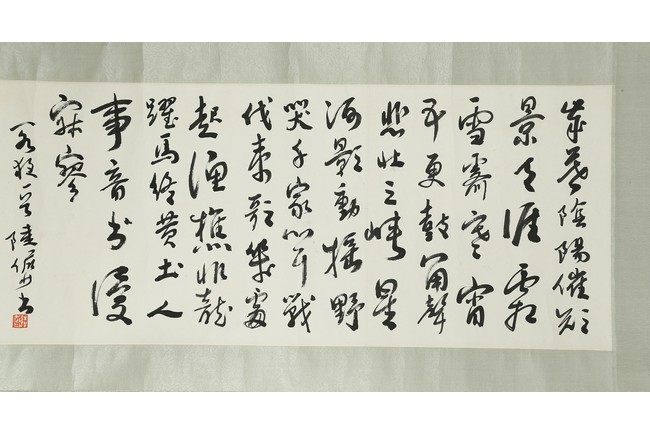 歲暮陰陽催短
景天涯霜
雪霽寒宵
五更鼓角聲
悲壯三峽星
河影動搖野
哭千家聞戰
伐夷歌幾處
起漁樵臥龍
躍馬終黃土人
事音書漫
寂寥
陸儼少书